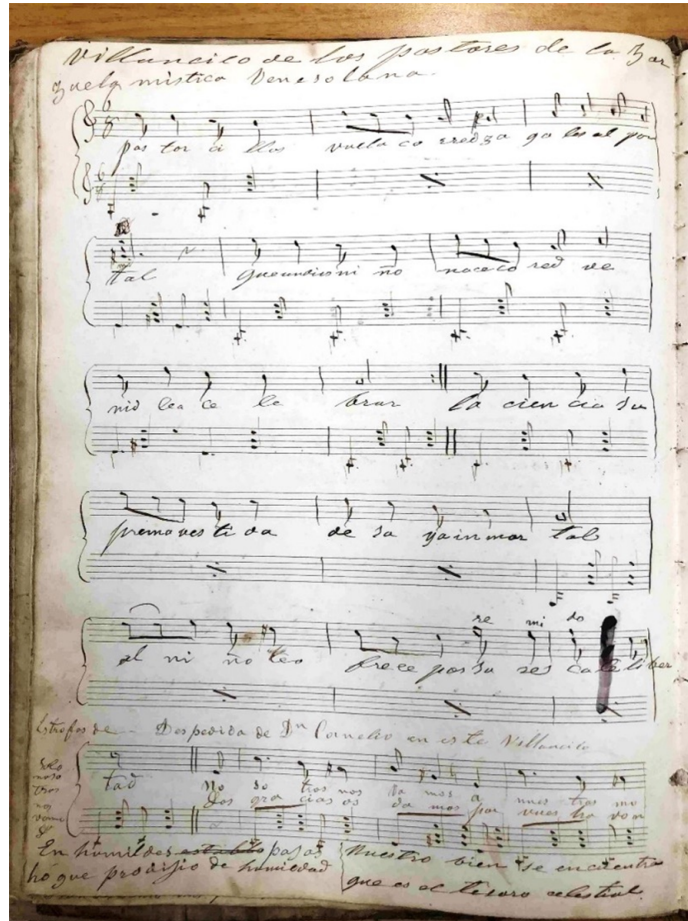 Villancico de los pastores de la Zar
zuela mistica Venesolana.
pas tor ci llos vuela co rred za ga les al por
tal que un dios ni ño nace co red ve
nid lea ce le brar la cien cia su
prema ves ti da de sa ya in mor tal
re mi do
el ni ño teo frece por su res cate liber
Estrofas de Despedida de Dn Cornelio en este Villancico
tad No so tros nos va mos a nues tros mo
Dos gra cias os da mos por vues tra
En humildes establo pajas
ho que prodijio de humildad
Nuestro bien se encuentra
que es el tesoro celestial.